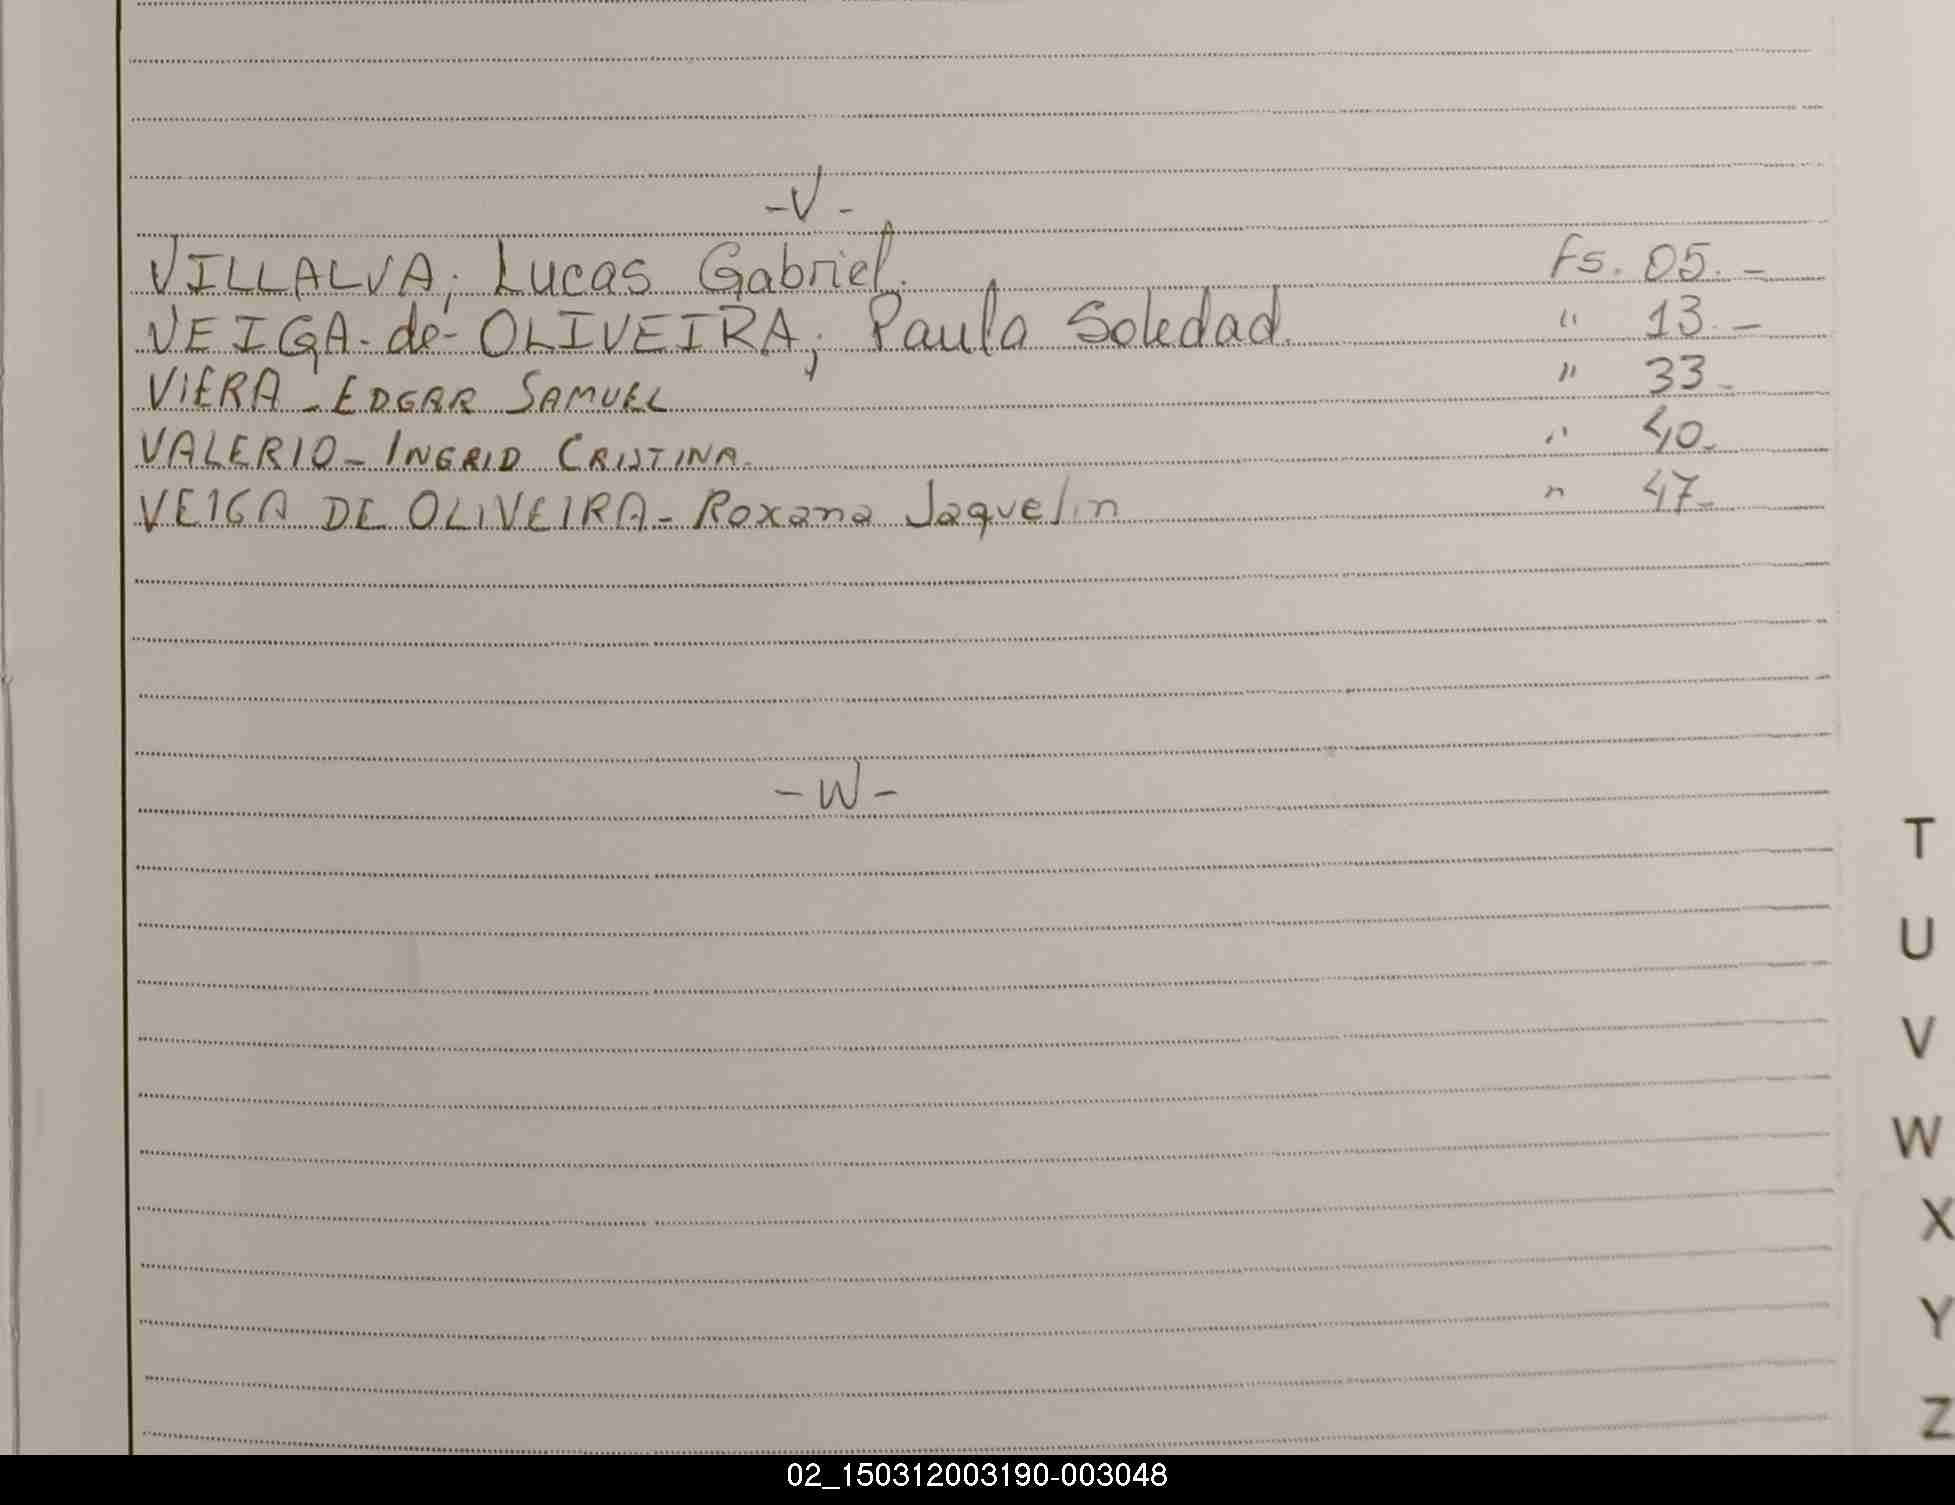 -V-
VILLALVA; Lucas Gabriel. Fs. 05.-
VEIGA-de-OLIVEIRA; Paula Soledad. " 13.-
VIERA - EDGAR SAMUEL " 33-
VALERIO - INGRID CRISTINA. " 40-
VEIGA DE OLIVEIRA - Roxana Jaquelin " 47-
-W-
T
U
V
W
X
Y
Z
02_150312003190-003048